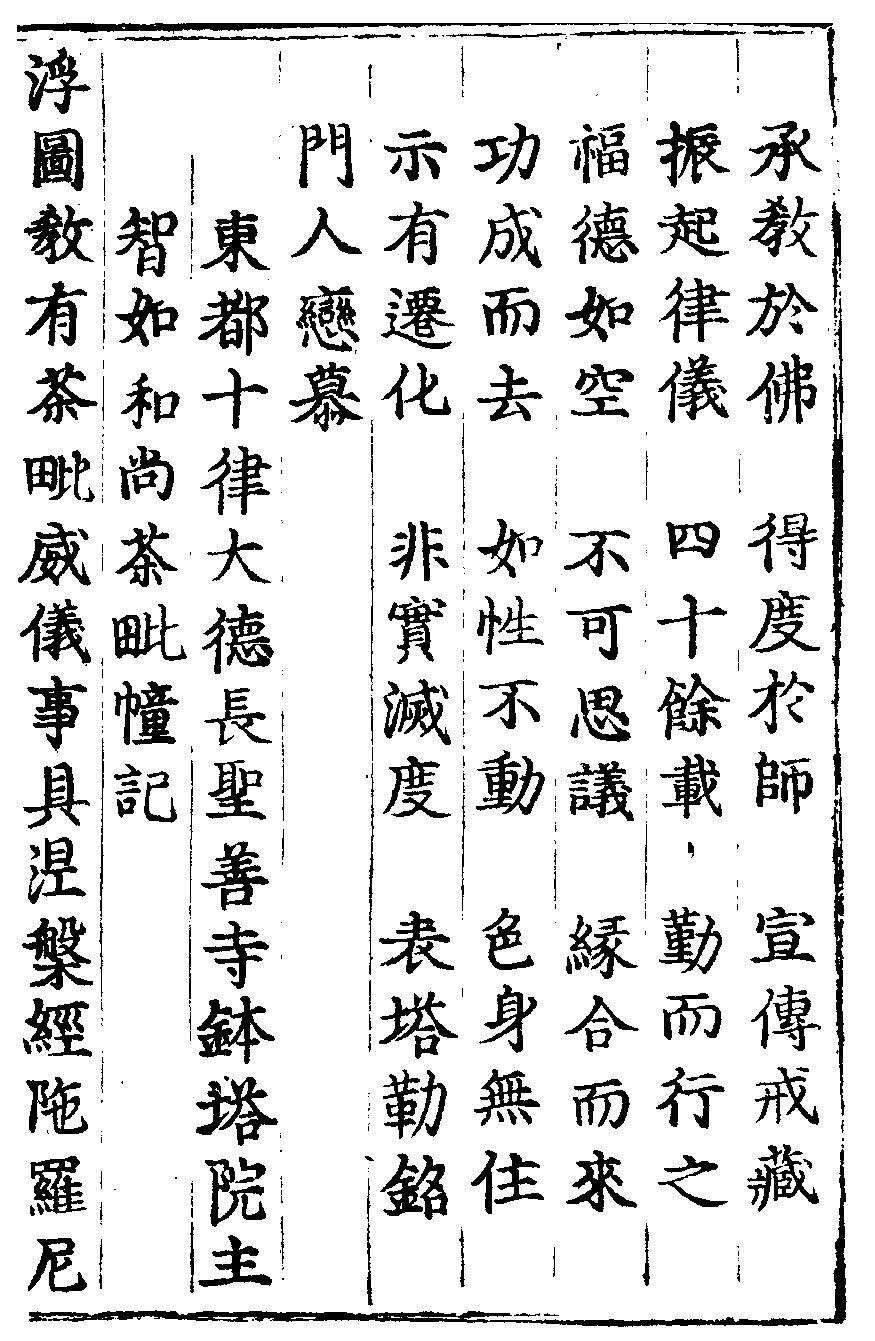 承教於佛　得度於師　宣傳戒藏
振起律儀　四十餘載　勤而行之
福德如空　不可思議　縁合而來
功成而去　如性不動　色身無住
示有遷化　非實滅度　表塔勒銘
門人戀慕
東都十律大德長聖善寺鉢塔院主
智如和尚茶毗幢記
浮圖教有茶毗威儀事具涅槃經陁羅尼